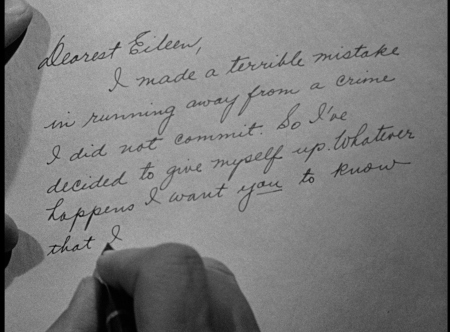 Dearest Eileen,
I made a terrible mistake
in running away from a crime
I did not commit. So I've
decided to give myself up. Whatever
happens I want you to know
that I